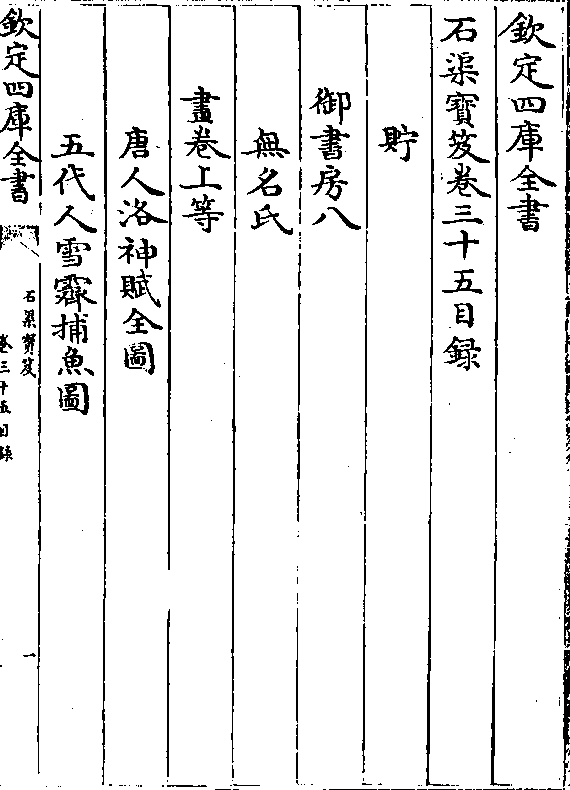 欽定四庫全書
石渠寶笈卷三十五目録
貯
御書房八
無名氏
畫卷上等
唐人洛神賦全圖
五代人雪霽捕魚圖
欽定四庫全書
石渠寶笈
卷三十五目錄
一